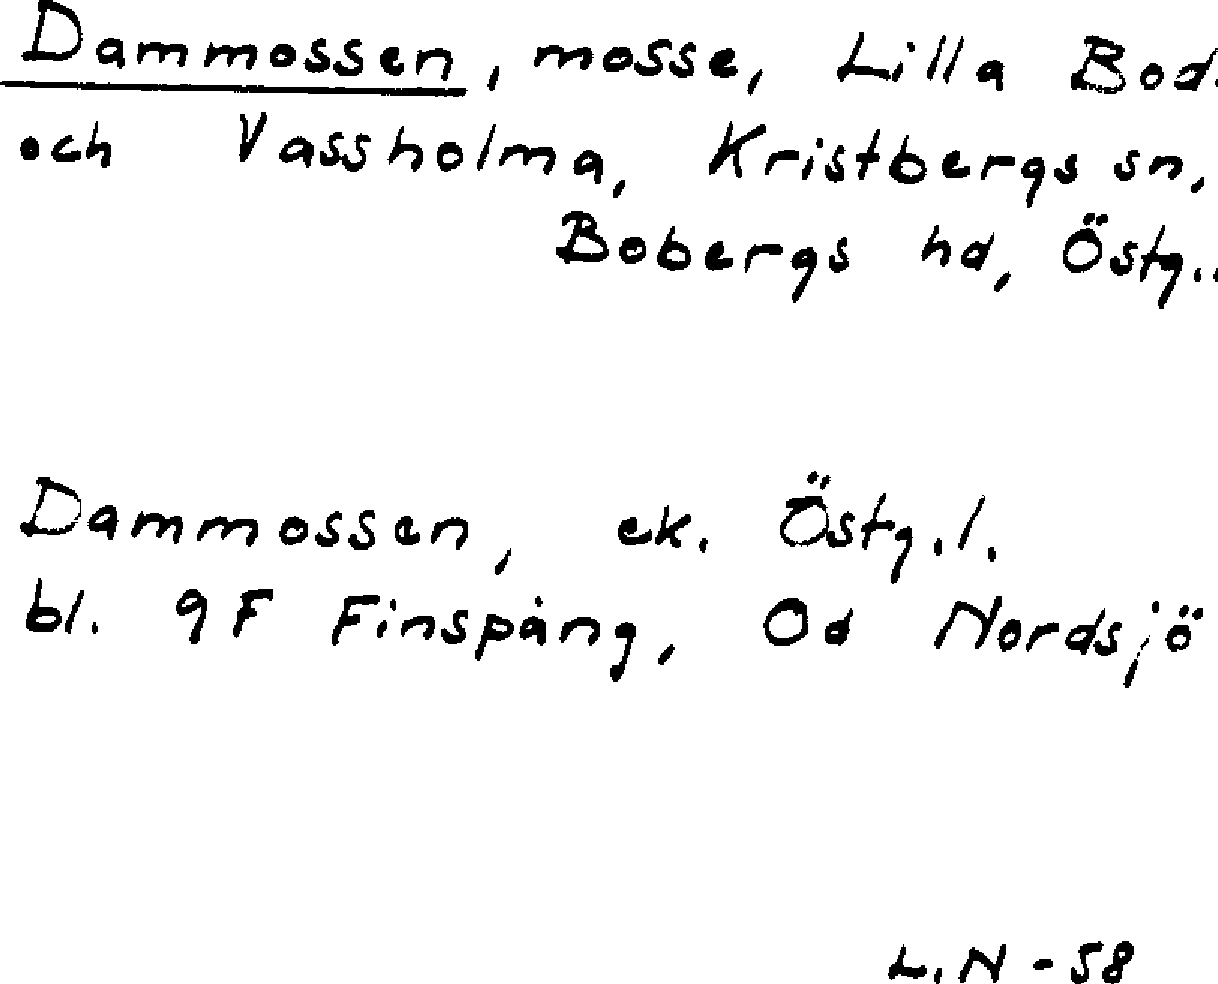 Dammossen, mosse, Lilla Bod.
och Vassholma, Kristbergs sn,
Bobergs hd, Östg..
Dammossen, ek. Östg.l.
bl. 9F Finspång, Od Nordsjö
L.N -58